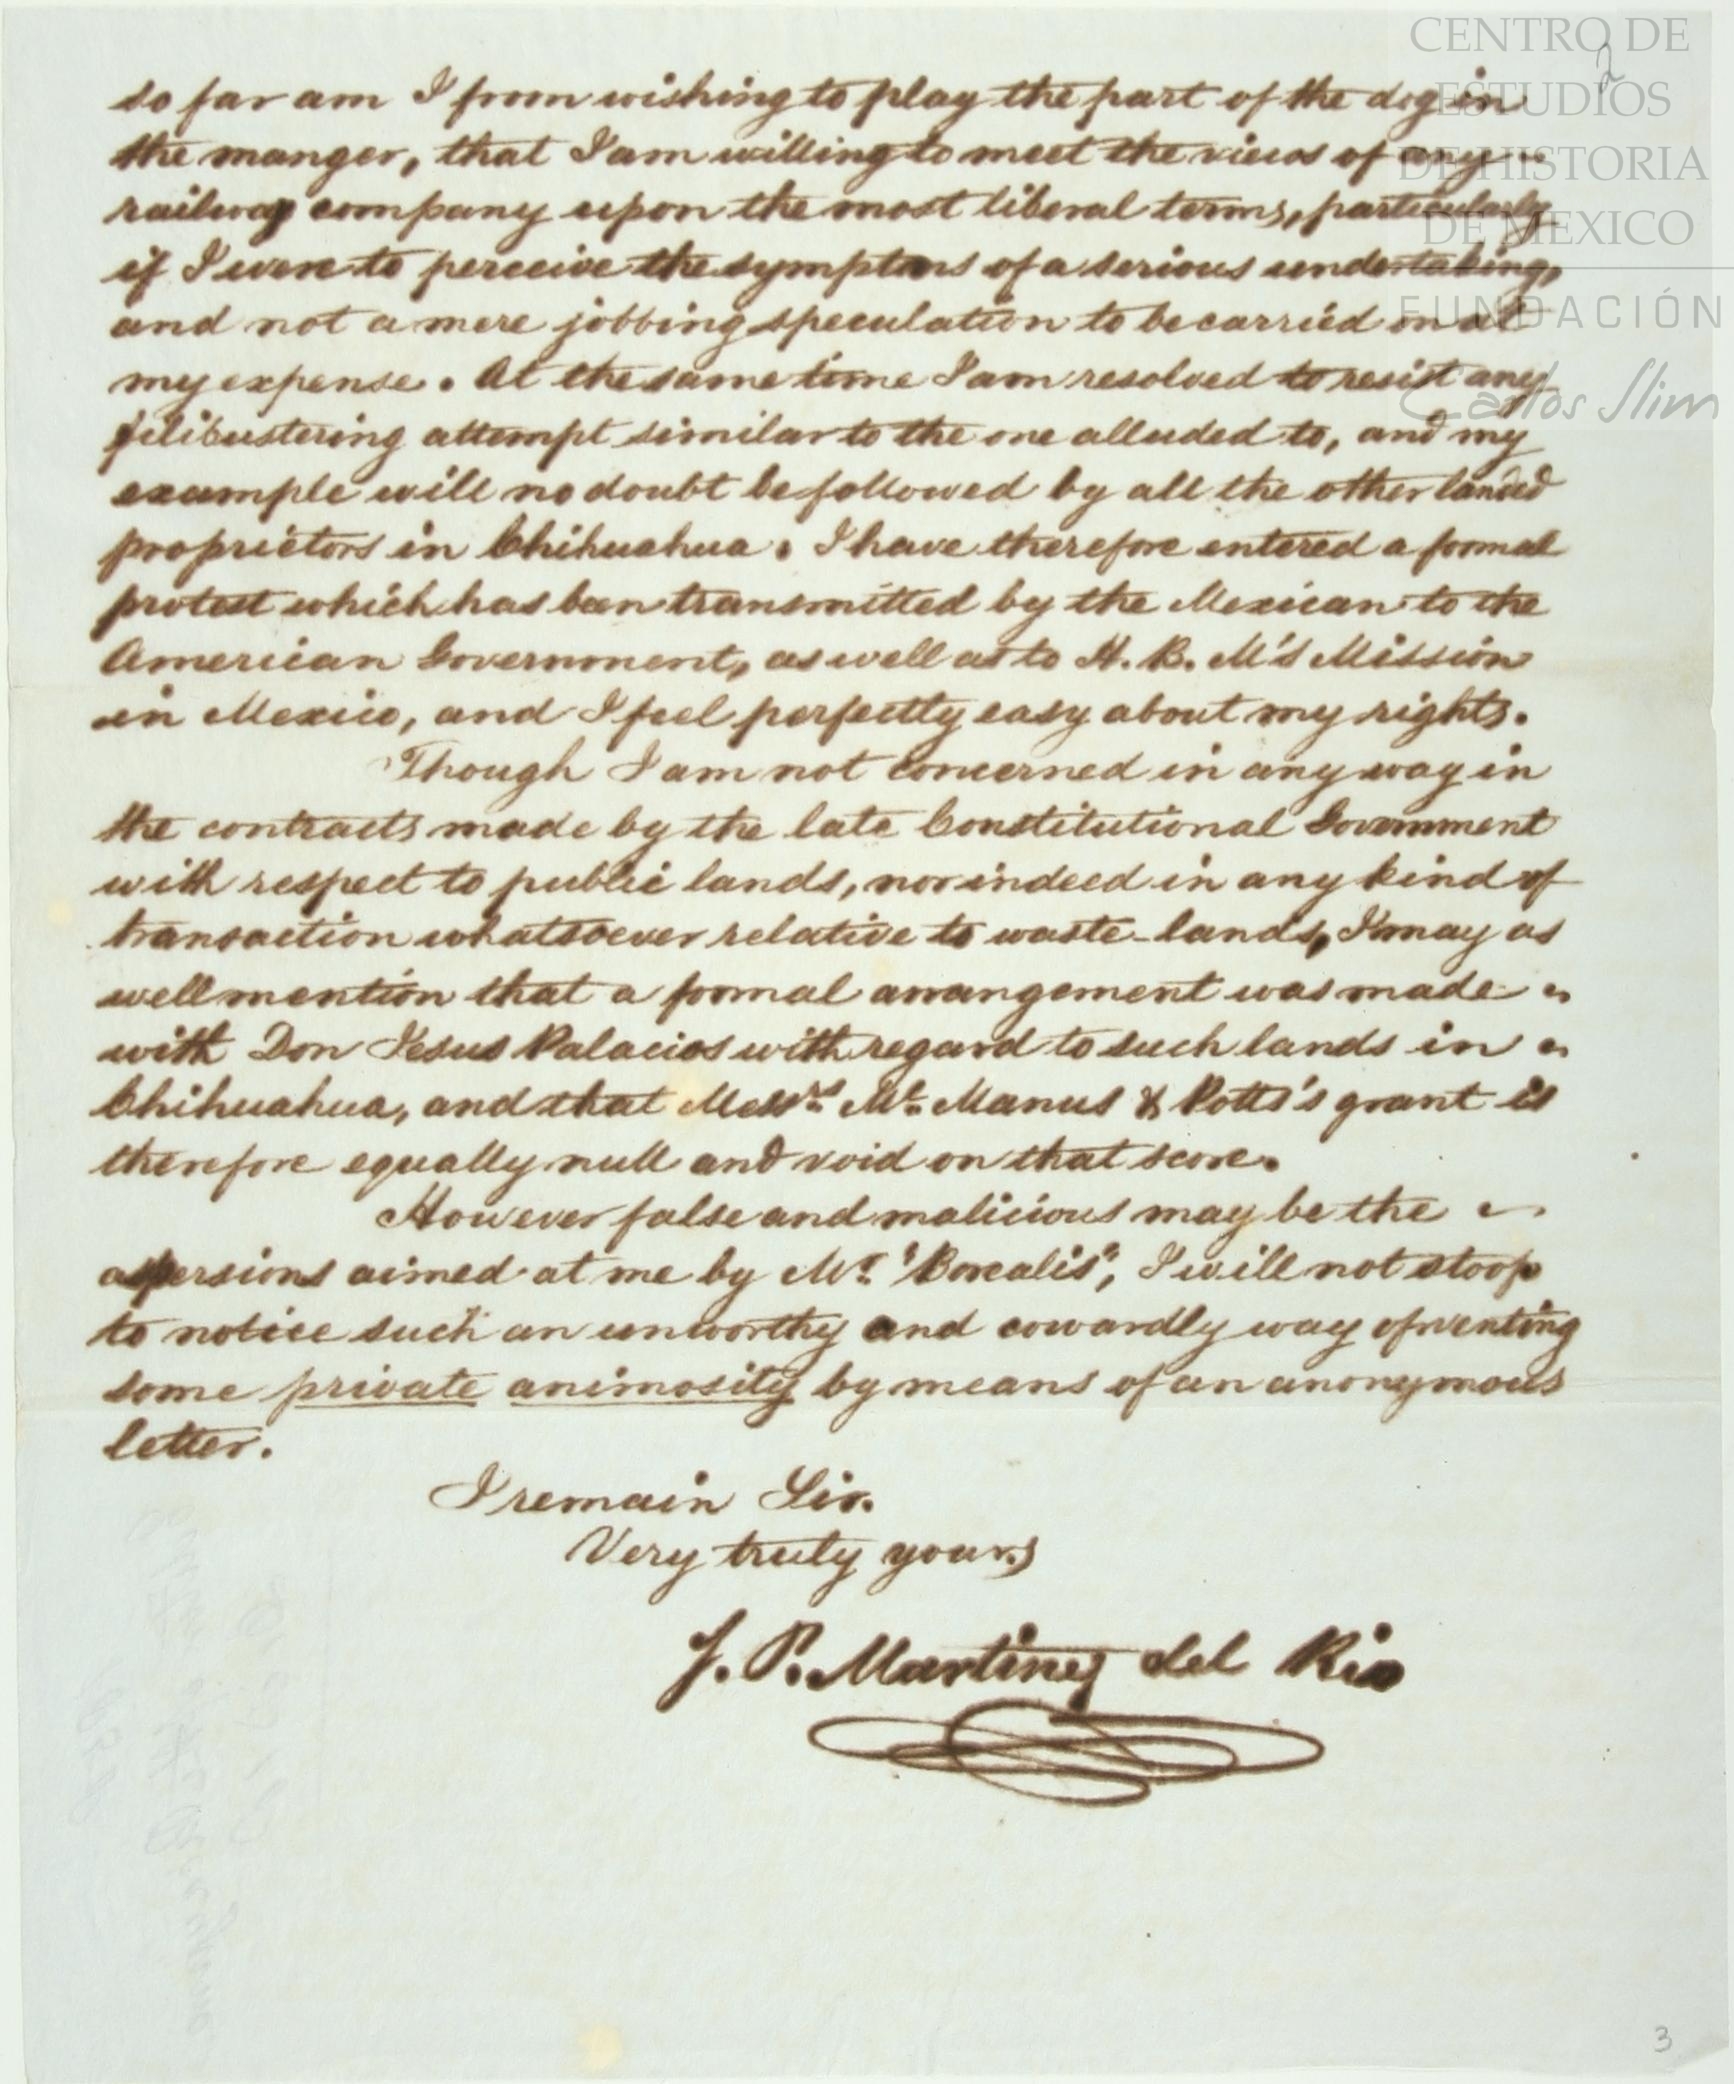 CENTRO DE
ESTUDIOS
DE HISTORIA
DE MEXICO
FUNDACIÓN
Carlos Slim
2
so far am I from wishing to play the part of the dog in
the manger, that I am willing to meet the views of any
railway company upon the most liberal terms, particularly
if I were to perceive the symptoms of a serious undertaking,
and not a mere jobbing speculation to be carried on at
my expense. At the same time I am resolved to resist any
filibustering attempt similar to the one alluded to, and my
example will no doubt be followed by all the other landed
proprietors in Chihuahua. I have therefore entered a formal
protest which has been transmitted by the Mexican to the
American Government, as well as to H. B. M's Mission
in Mexico, and I feel perfectly easy about my rights.
Though I am not concerned in any way in
the contracts made by the late Constitutional Government
with respect to public lands, nor indeed in any kind of
transaction whatsoever relative to waste-lands, I may as
well mention that a formal arrangement was made
with Don Jesus Palacios with regard to such lands in
Chihuahua, and that Messrs. Mc. Manus & Potts's grant is
therefore equally null and void on that score.
However false and malicious may be the
aspersions aimed at me by Mr. "Borealis", I will not stoop
to notice such an unworthy and cowardly way of venting
some private animosity by means of an anonymous
letter.
I remain Sir.
Very truly yours
J. P. Martinez del Rio
3